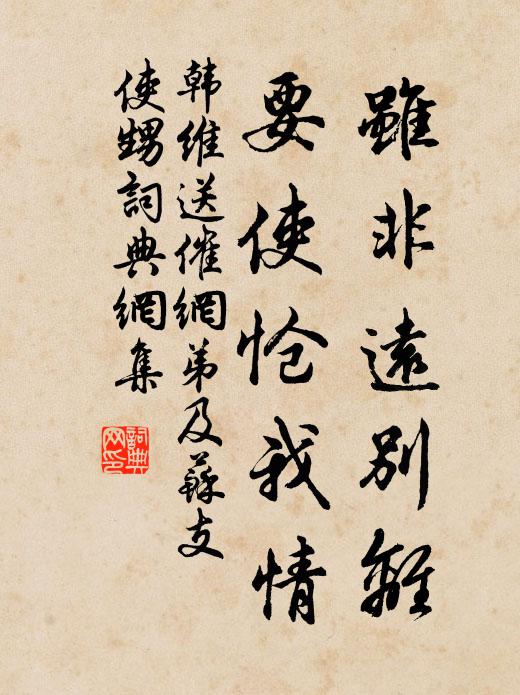 雖非遠別離
要使怆我情
韩維送催網弟及蘇支
使甥詞典網集
詞典网印